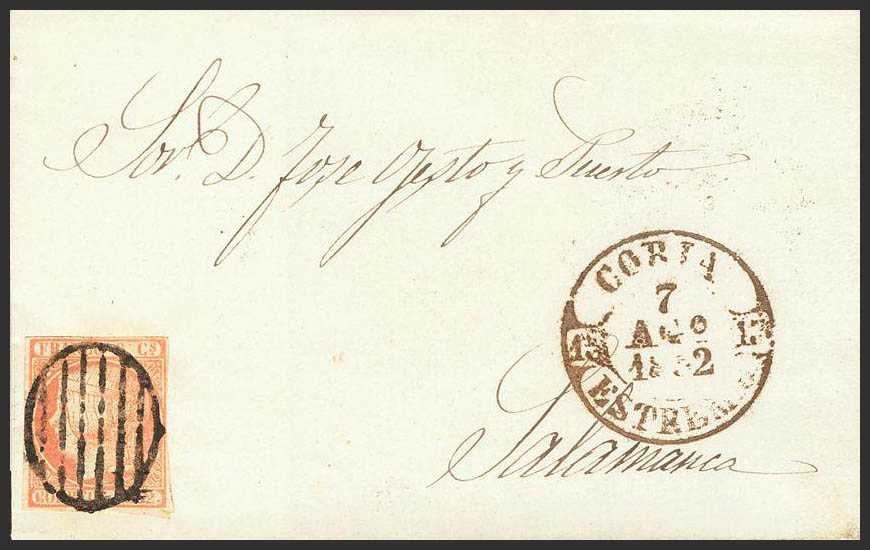 Sor. D. Jose Gesto y Puerto
CORIA
7
AGO
1852
15 17
ESTREM
Salamanca
FR CS
CO